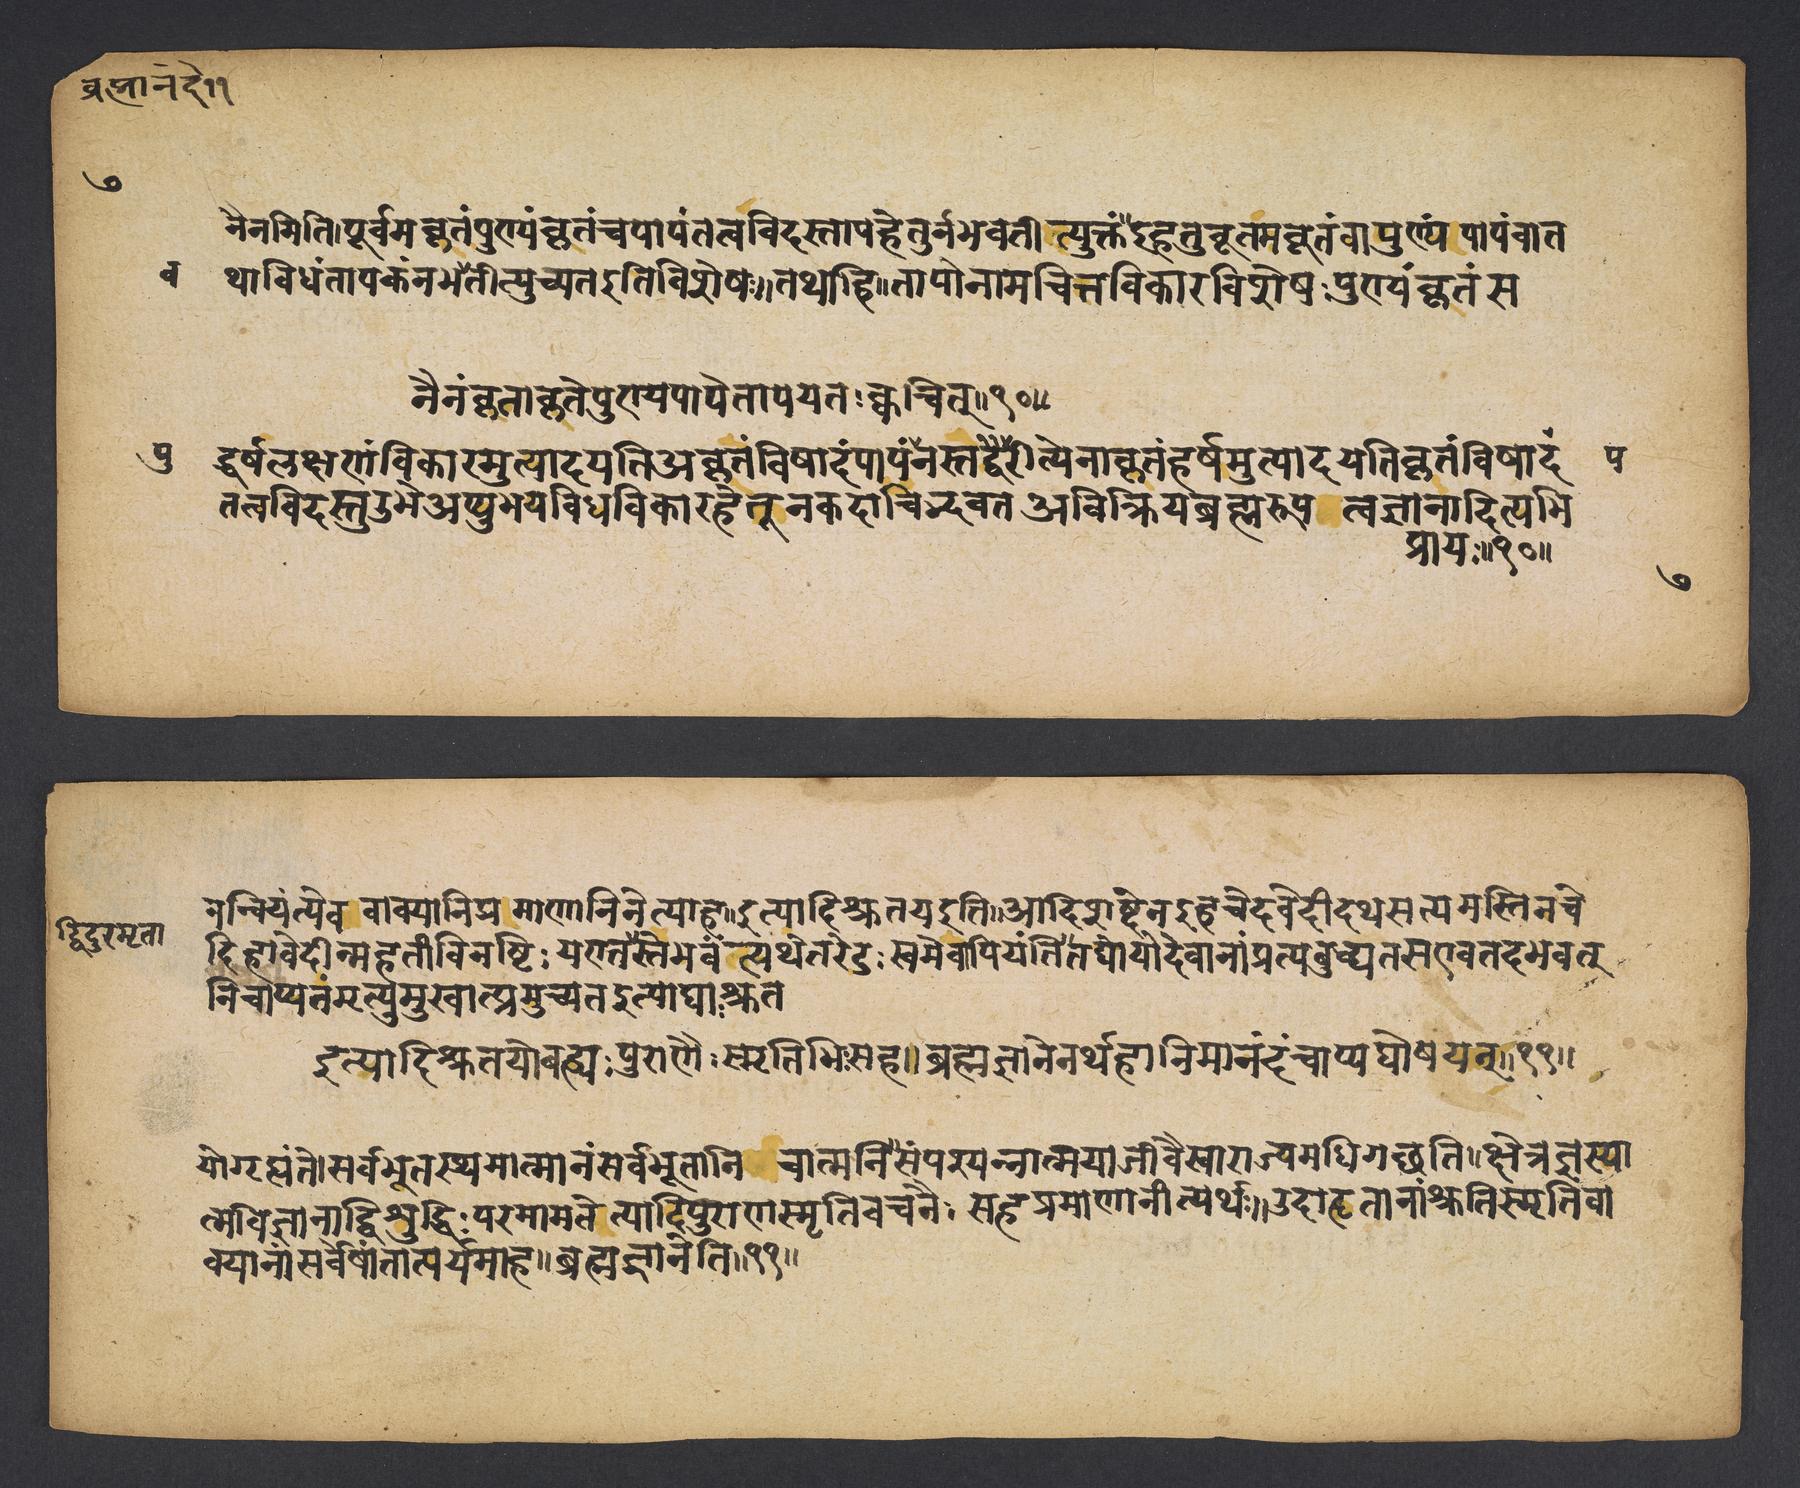 ब्रह्मानंदे११
७
नैनमिति।पूर्वमकृतंपुण्यंकृतंचपापंतत्वविदस्तापहेतुर्नभवतीत्युक्तं॥इहतुकृतमकृतंवापुण्यंपापंवात
व
थाविधंतापकंनभतीत्युच्यतइतिविशेषः॥तथाहि॥तापोनामचित्तविकारविशेषःपुण्यंकृतंस
नैनंकृताकृतेपुण्यपापेतापयतःक्वचित्॥१०॥
पु
द्धर्षलक्षणंविकारमुत्पादयतिअकृतंविषादंपापंनैस्तद्वैरीत्येनाकृतंहर्षमुत्पादयतिकृतंविषादं
प
तत्वविदस्तुउभेअप्युभयविधविकारहेतूनकदाचिद्भवतअविक्रियब्रह्मरुपत्वज्ञानादित्यभि
प्रायः॥१०॥
७
नन्वियंत्येववाक्यानिप्रमाणानिनेत्याह॥इत्यादिश्रुतयइति॥आदिशब्देनइहचेदवेदीदथसत्यमस्तिनचे
द्विदुरमृता
दिहावेदीन्महतीविनष्टिःयएतत्तेभवंत्यथेतरेदुःखमेवापियंति॥तद्योयोदेवानांप्रत्यबुध्यतसएवतदभवत्
निचाय्यतंमृत्युमुखात्प्रमुच्यतइत्याद्याःश्रुत
इत्यादिश्रुतयोबह्व्यःपुराणैःस्मृतिभिःसह॥ब्रह्मज्ञानेनर्थहानिमानंदंचाप्यघोषयन्॥११॥
योगृह्यंते।सर्वभूतस्थमात्मानंसर्वभूतानिचात्मनि॥संपश्यन्नात्मयाजीवैस्वाराज्यमधिगछति॥क्षेत्रज्ञस्या
त्मविज्ञानाद्विशुद्धिःपरमामतेत्यादिपुराणस्मृतिवचनैःसहप्रमाणानीत्यर्थः॥उदाहृतानांश्रुतिस्मृतिवा
क्यानांसर्वेषांतात्पर्यमाह॥ब्रह्मज्ञानेति॥११॥